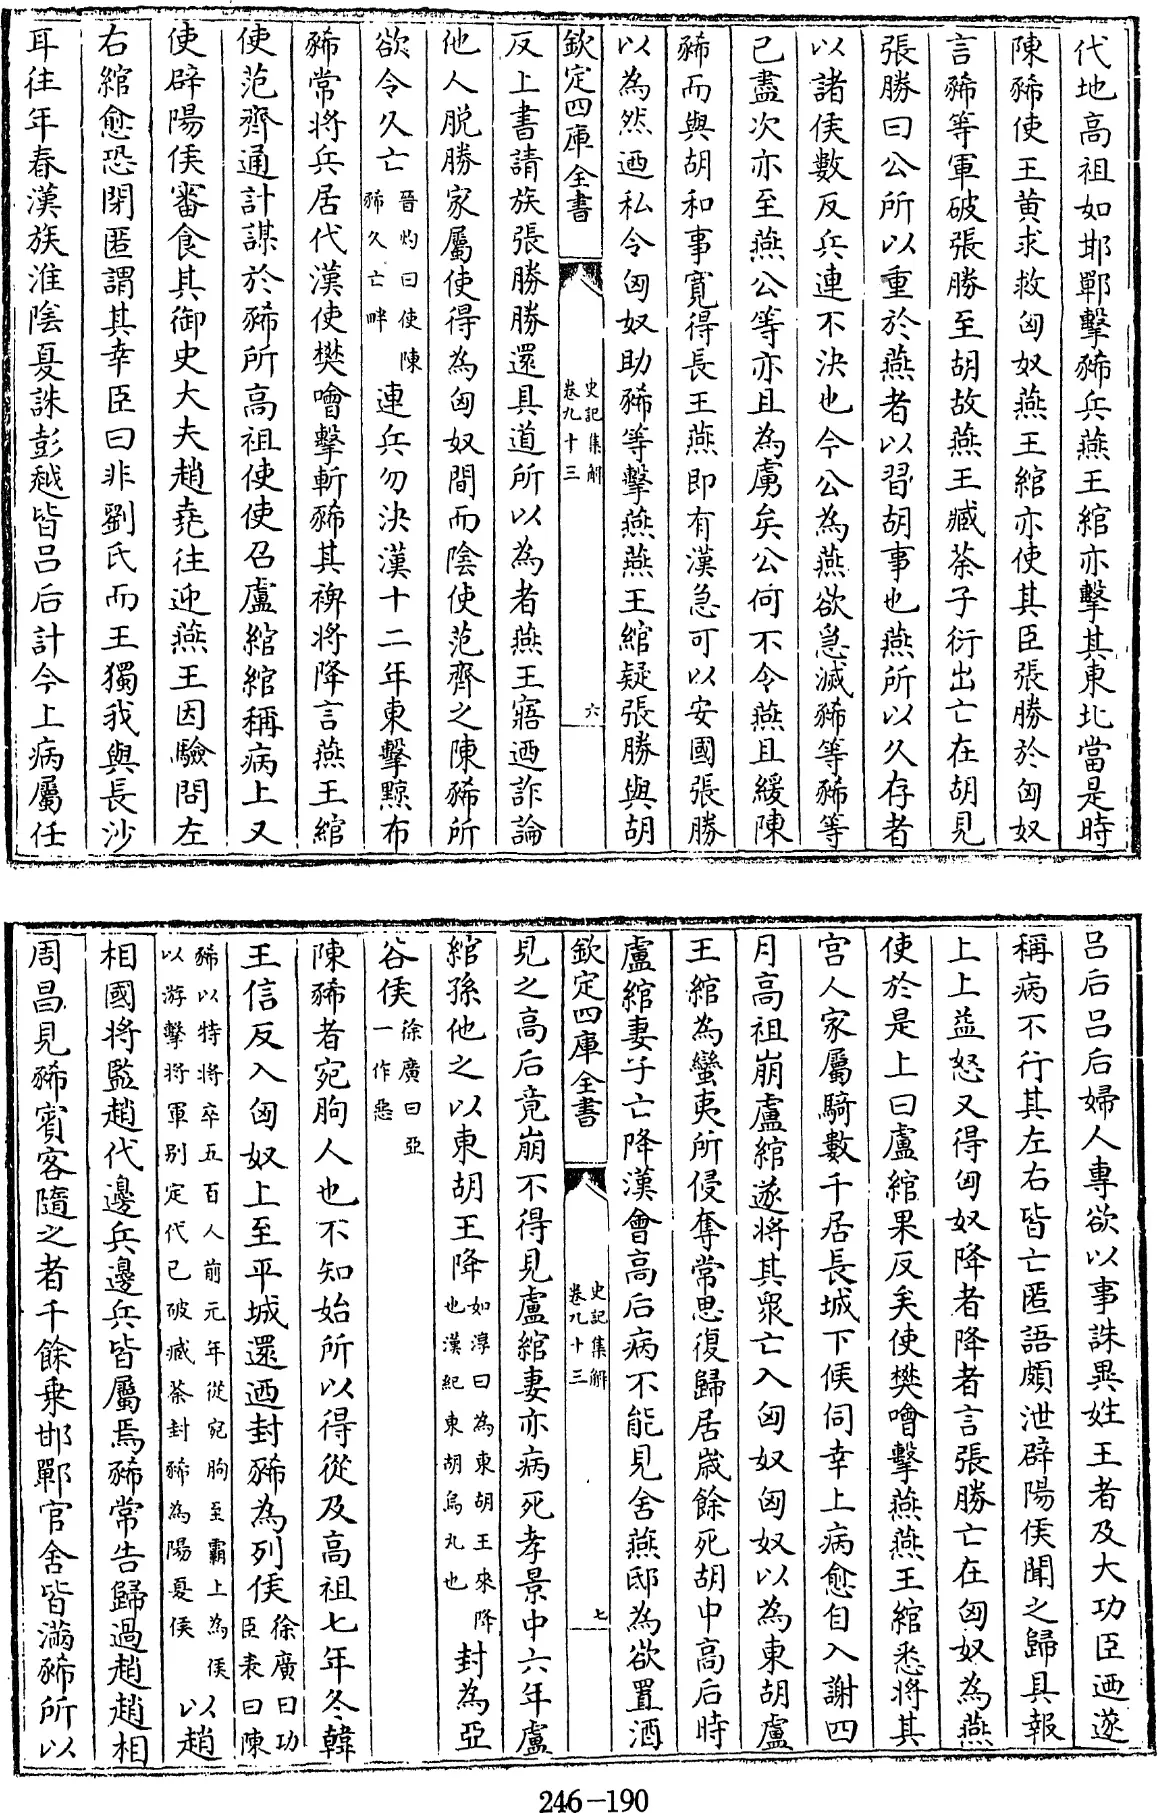 代地高祖如邯鄲擊豨兵燕王綰亦擊其東北當是時
陳豨使王黄求救匈奴燕王綰亦使其臣張勝於匈奴
言豨等軍破張勝至胡故燕王臧荼子衍出亡在胡見
張勝曰公所以重於燕者以習胡事也燕所以久存者
以諸侯數反兵連不決也今公為燕欲急滅豨等豨等
已盡次亦至燕公等亦且為虜矣公何不令燕且緩陳
豨而與胡和事寛得長王燕即有漢急可以安國張勝
以為然迺私令匈奴助豨等擊燕燕王綰疑張勝與胡
欽定四庫全書 史記集解 卷九十三 六
反上書請族張勝勝還具道所以為者燕王寤迺詐論
他人脱勝家屬使得為匈奴間而陰使范齊之陳豨所
欲令久亡晉灼曰使陳豨久亡畔連兵勿決漢十二年東擊黥布
豨常將兵居代漢使樊噲擊斬豨其裨將降言燕王綰
使范齊通計謀於豨所高祖使使召盧綰綰稱病上又
使辟陽侯審食其御史大夫趙堯往迎燕王因驗問左
右綰愈恐閉匿謂其幸臣曰非劉氏而王獨我與長沙
耳往年春漢族淮陰夏誅彭越皆吕后計今上病屬任
吕后吕后婦人專欲以事誅異姓王者及大功臣迺遂
稱病不行其左右皆亡匿語頗泄辟陽侯聞之歸具報
上上益怒又得匈奴降者降者言張勝亡在匈奴為燕
使於是上曰盧綰果反矣使樊噲擊燕燕王綰悉將其
宫人家屬騎數千居長城下侯伺幸上病愈自入謝四
月高祖崩盧綰遂將其衆亡入匈奴匈奴以為東胡盧
王綰為蠻夷所侵奪常思復歸居歲餘死胡中高后時
盧綰妻子亡降漢會高后病不能見舍燕邸為欲置酒
欽定四庫全書 史記集解 卷九十三 七
見之高后竟崩不得見盧綰妻亦病死孝景中六年盧
綰孫他之以東胡王降如淳曰為東胡王來降也漢紀東胡烏丸也封為亞
谷侯徐廣曰亞一作惡
陳豨者宛朐人也不知始所以得從及高祖七年冬韓
王信反入匈奴上至平城還迺封豨為列侯徐廣曰功臣表曰陳
豨以特將卒五百人前元年從宛朐至霸上為侯以游擊將軍别定代已破臧荼封豨為陽夏侯以趙
相國將監趙代邊兵邊兵皆屬焉豨常告歸過趙趙相
周昌見豨賓客隨之者千餘乗邯鄲官舍皆滿豨所以
246-190